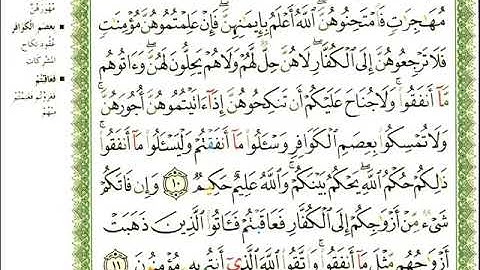 مُهَٰجِرَٰتٍ فَٱمۡتَحِنُوهُنَّۖ ٱللَّهُ أَعۡلَمُ بِإِيمَٰنِهِنَّۖ فَإِنۡ عَلِمۡتُمُوهُنَّ مُؤۡمِنَٰتٍ
فَلَا تَرۡجِعُوهُنَّ إِلَى ٱلۡكُفَّارِۖ لَا هُنَّ حِلّٞ لَّهُمۡ وَلَا هُمۡ يَحِلُّونَ لَهُنَّۖ وَءَاتُوهُم
مَّآ أَنفَقُواْۚ وَلَا جُنَاحَ عَلَيۡكُمۡ أَن تَنكِحُوهُنَّ إِذَآ ءَاتَيۡتُمُوهُنَّ أُجُورَهُنَّۚ
وَلَا تُمۡسِكُواْ بِعِصَمِ ٱلۡكَوَافِرِ وَسۡـَٔلُواْ مَآ أَنفَقۡتُمۡ وَلۡيَسۡـَٔلُواْ مَآ أَنفَقُواْۚ
ذَٰلِكُمۡ حُكۡمُ ٱللَّهِ يَحۡكُمُ بَيۡنَكُمۡۖ وَٱللَّهُ عَلِيمٌ حَكِيمٞ ١٠ وَإِن فَاتَكُمۡ
شَيۡءٞ مِّنۡ أَزۡوَٰجِكُمۡ إِلَى ٱلۡكُفَّارِ فَعَاقَبۡتُمۡ فَـَٔاتُواْ ٱلَّذِينَ ذَهَبَتۡ
أَزۡوَٰجُهُم مِّثۡلَ مَآ أَنفَقُواْۚ وَٱتَّقُواْ ٱللَّهَ ٱلَّذِيٓ أَنتُم بِهِۦ مُؤۡمِنُونَ ١١
مهورهن
بعصم الكوافر
عقود نكاح
المشركات
فعاقبتم
فغزوتم فغنمتم
منهم